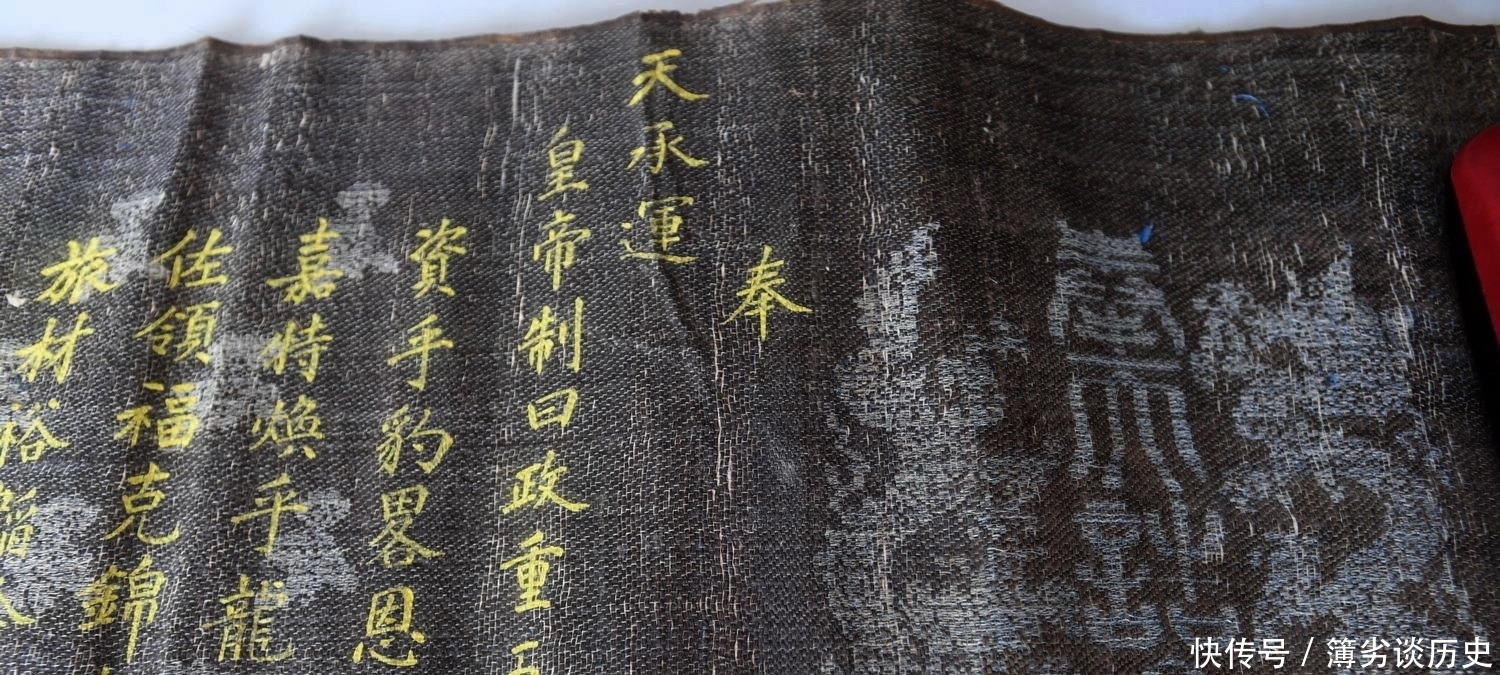 奉
天承運
皇帝制曰政重
資乎豹畧恩
嘉特煥乎龍
佐領福克錦
旅材裕
快传号 / 簿劣谈历史